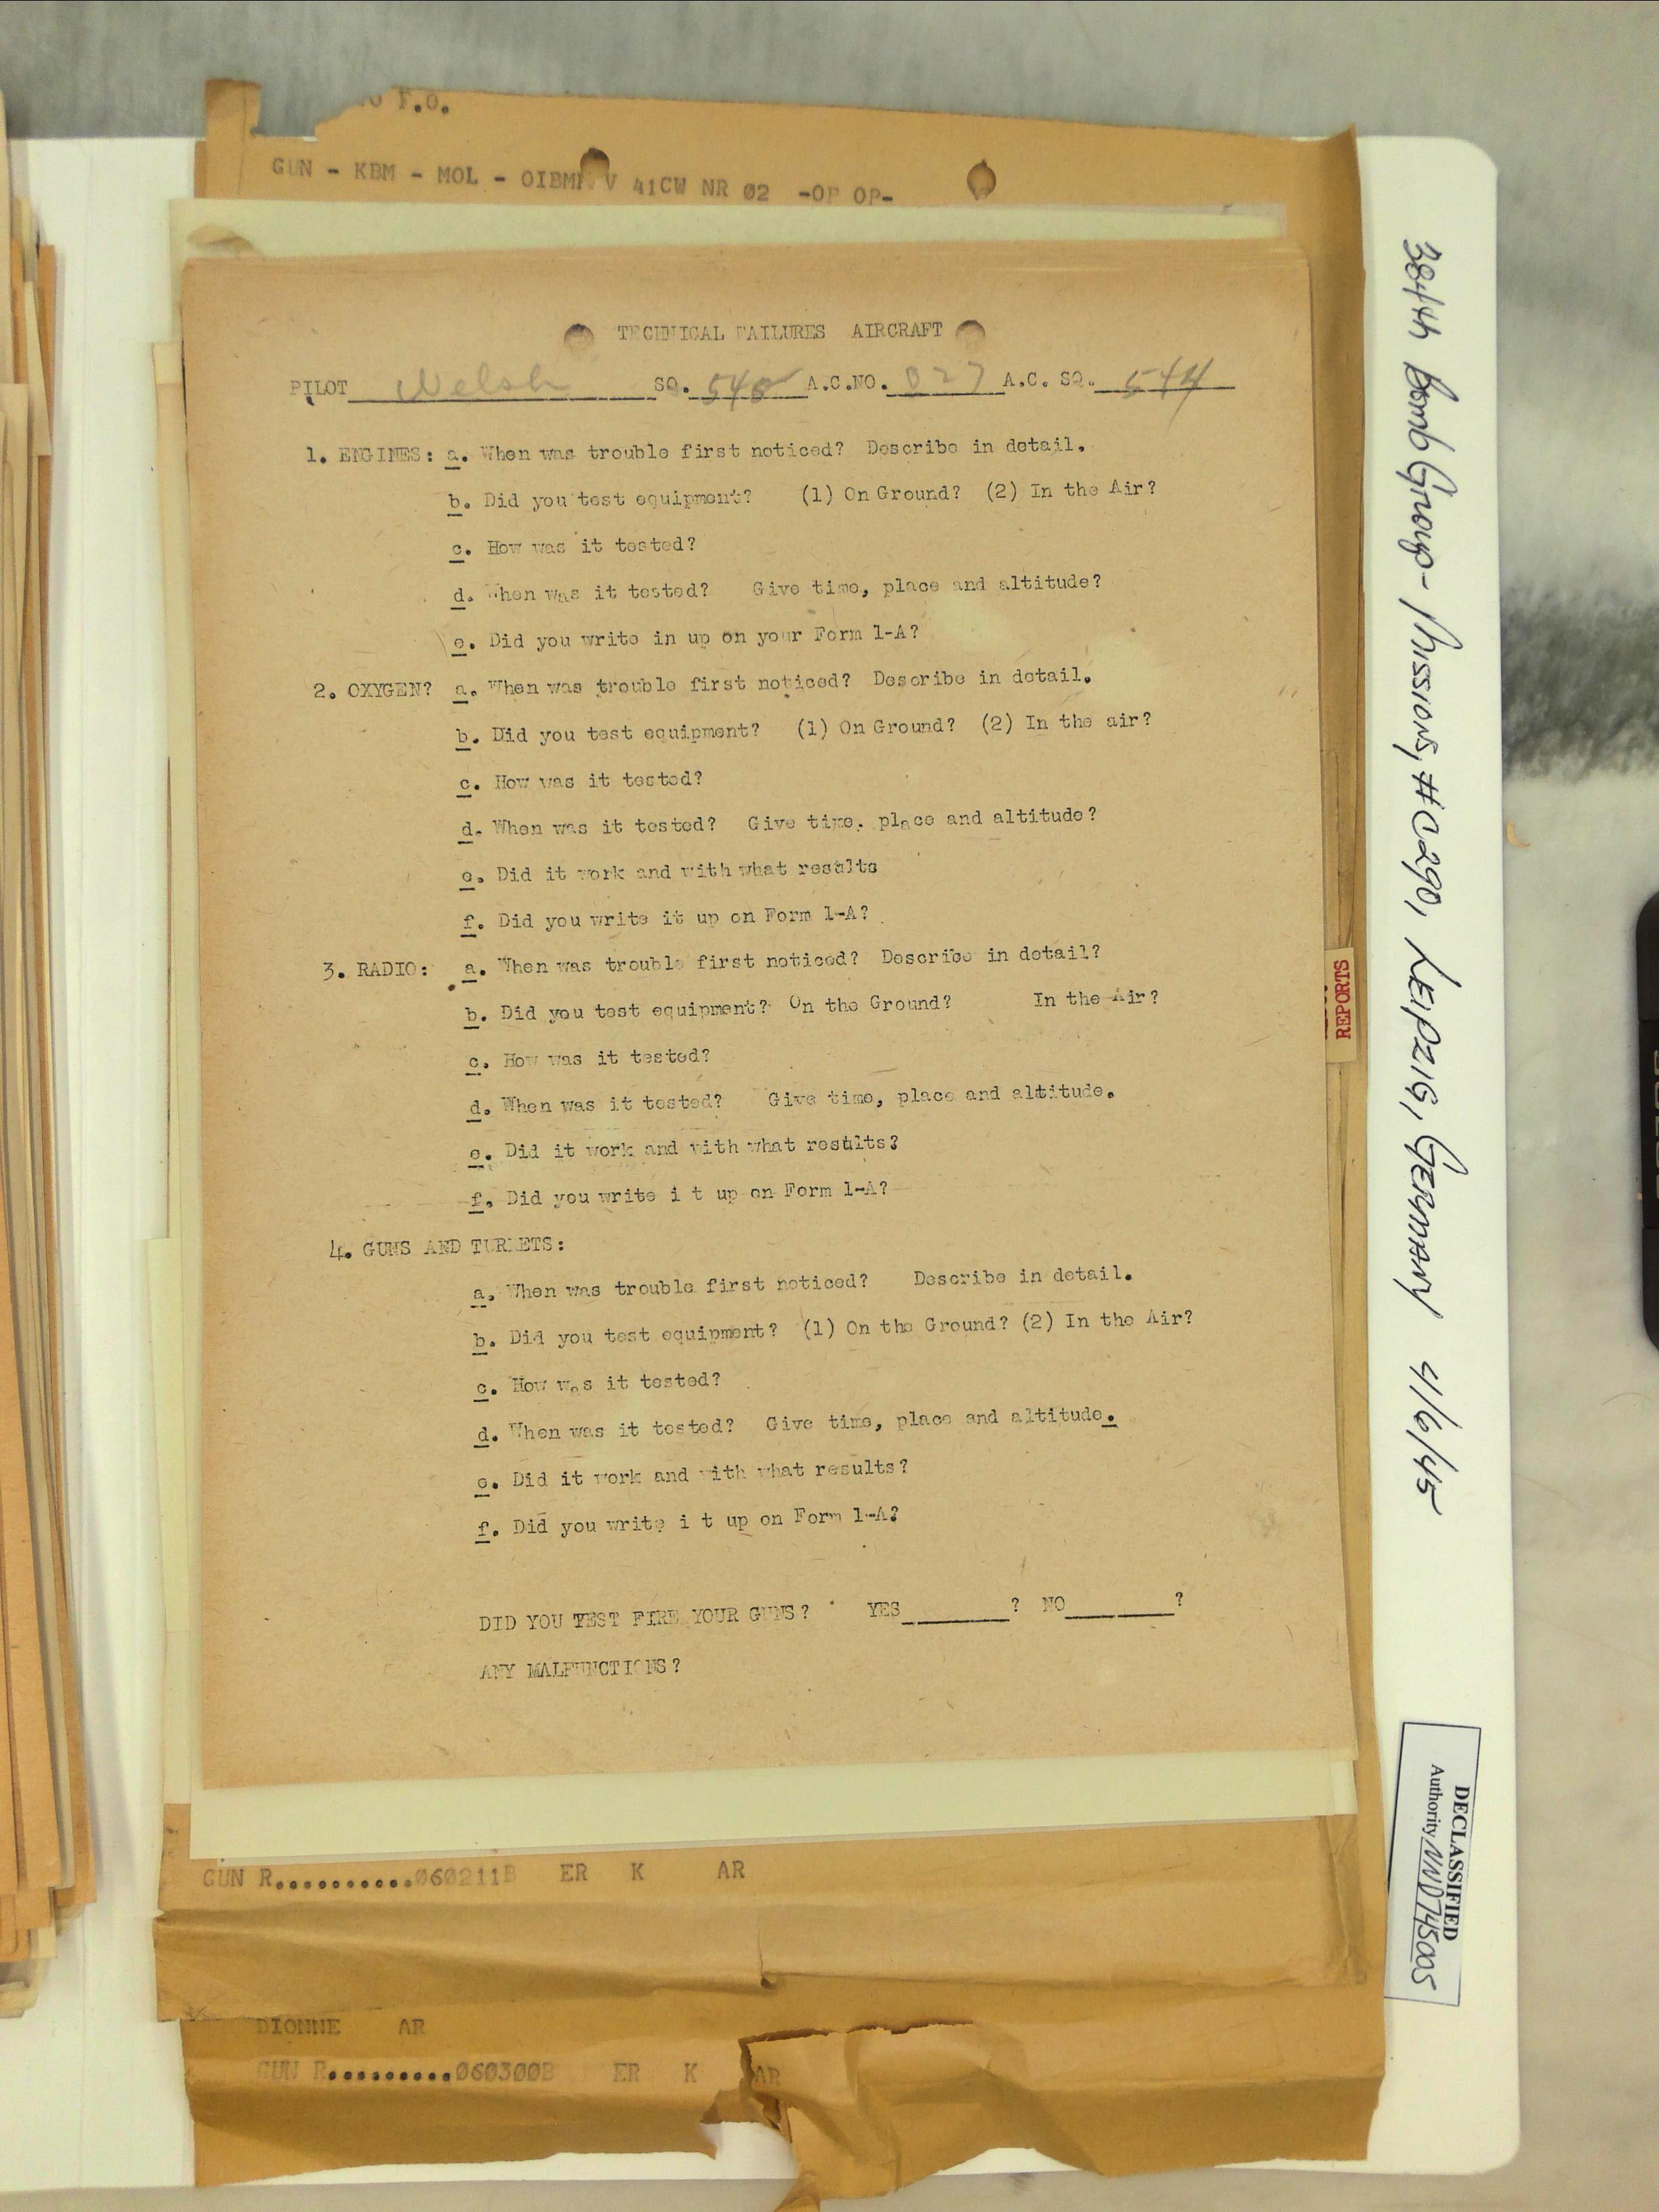 F.O.
GUN - KBM - MOL - OIBMR V 41CW NR 02 -OP OP-
TECHNICAL FAILURES AIRCRAFT
PILOT Welsh SQ. 545 A.C.NO. 827 A.C. SQ. 544
1. ENGINES: a. When was trouble first noticed? Describe in detail.
b. Did you test equipment? (1) On Ground? (2) In the Air?
c. How was it tested?
d. When was it tested? Give time, place and altitude?
e. Did you write in up on your Form 1-A?
2. OXYGEN? a. When was trouble first noticed? Describe in detail.
b. Did you test equipment? (1) On Ground? (2) In the air?
c. How was it tested?
d. When was it tested? Give time. place and altitude?
e. Did it work and with what results
f. Did you write it up on Form 1-A?
3. RADIO: a. When was trouble first noticed? Describe in detail?
b. Did you test equipment? On the Ground? In the Air?
c. How was it tested?
d. When was it tested? Give time, place and altitude.
e. Did it work and with what results?
f. Did you write i t up on Form 1-A?
4. GUNS AND TURRETS:
a. When was trouble first noticed? Describe in detail.
b. Did you test equipment? (1) On the Ground? (2) In the Air?
c. How was it tested?
d. When was it tested? Give time, place and altitude.
e. Did it work and with what results?
f. Did you write i t up on Form 1-A?
DID YOU TEST FIRE YOUR GUNS? YES________? NO________?
ANY MALFUNCTIONS?
GUN R..........060211B ER K AR
DIONNE AR
GUN R.........060300B ER K AR
REPORTS
384th Bomb Group - Missions, #0290, LEIPZIG, GERMANY 4/6/45
DECLASSIFIED
Authority NND745005